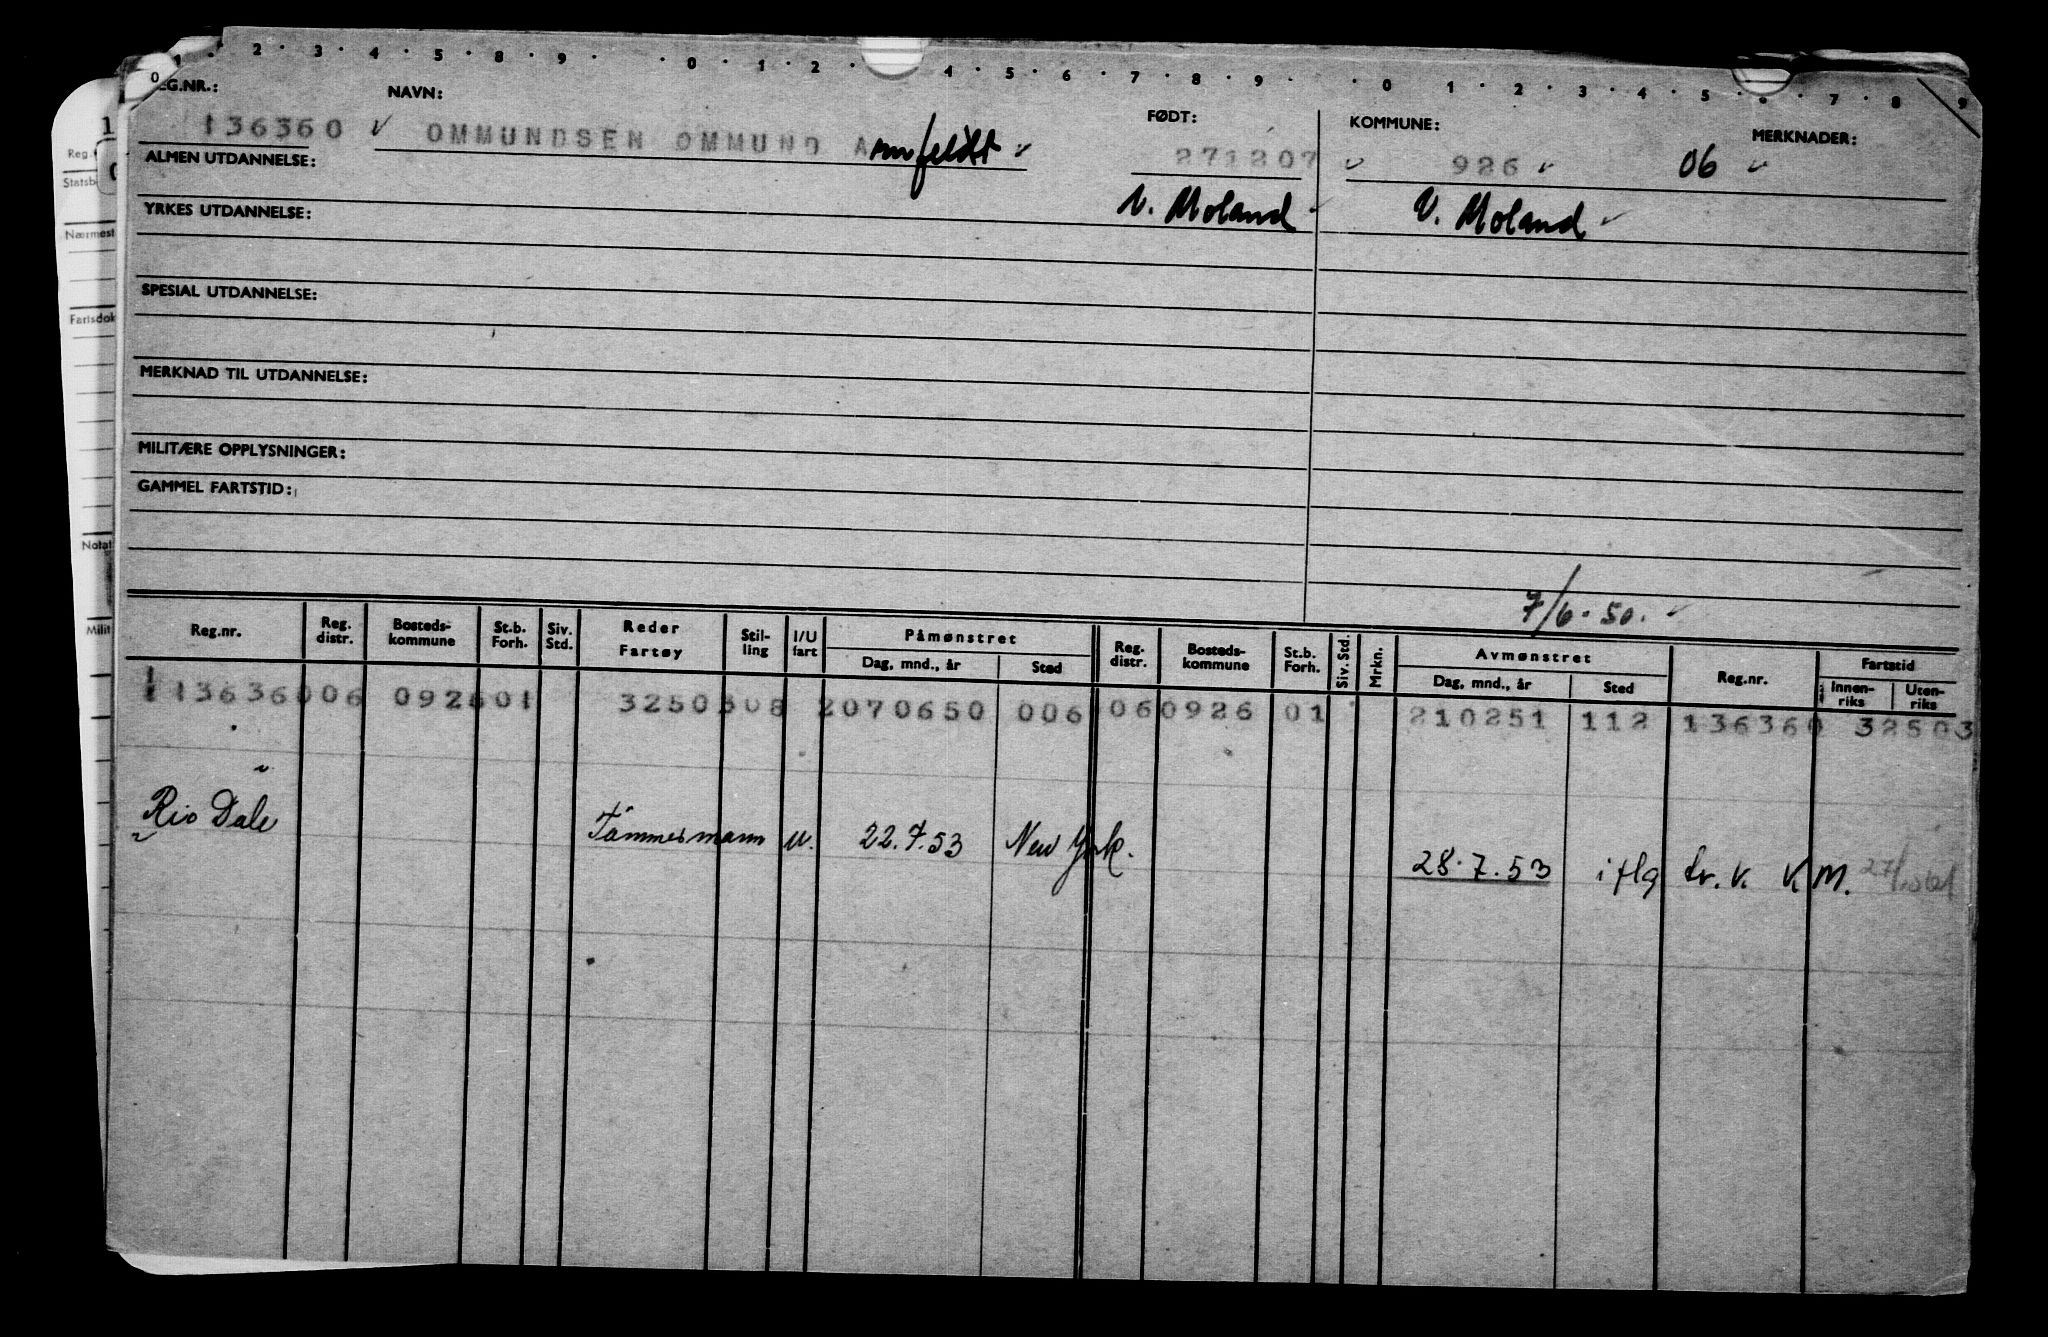 0 1 2 3 4 5 8 9 0 1 2 4 5 6 7 8 9 0 1 2 3 4 5 6 7 8 9
EG.NR.: NAVN: FØDT: KOMMUNE: MERKNADER:
136360 OMMUNDSEN OMMUND Arnfeldt 271207 926 06
ALMEN UTDANNELSE:
V. Moland V. Moland
YRKES UTDANNELSE:
SPESIAL UTDANNELSE:
MERKNAD TIL UTDANNELSE:
MILITÆRE OPPLYSNINGER:
GAMMEL FARTSTID:
7/6-50.
Reg.nr. Reg. distr. Bosteds-kommune St.b. Forh. Siv. Std. Reder Fartøy Stil-ling I/U fart Påmønstret Dag, mnd., år Sted Reg. distr. Bosteds-kommune St.b. Forh. Siv. Std. Mrkn. Avmønstret Dag, mnd., år Sted Reg.nr. Fartstid Innen-riks Uten-riks
136360 06 0926 01 3250308 2070650 006 06 0926 01 210251 112 136360 32503
Rio Dale Tømmermann u. 22.7.53 New York. 28.7.53 iflg br. v. K M.
Reg.
Statsb
Nærmest
Fartsdok
Notat
Milit